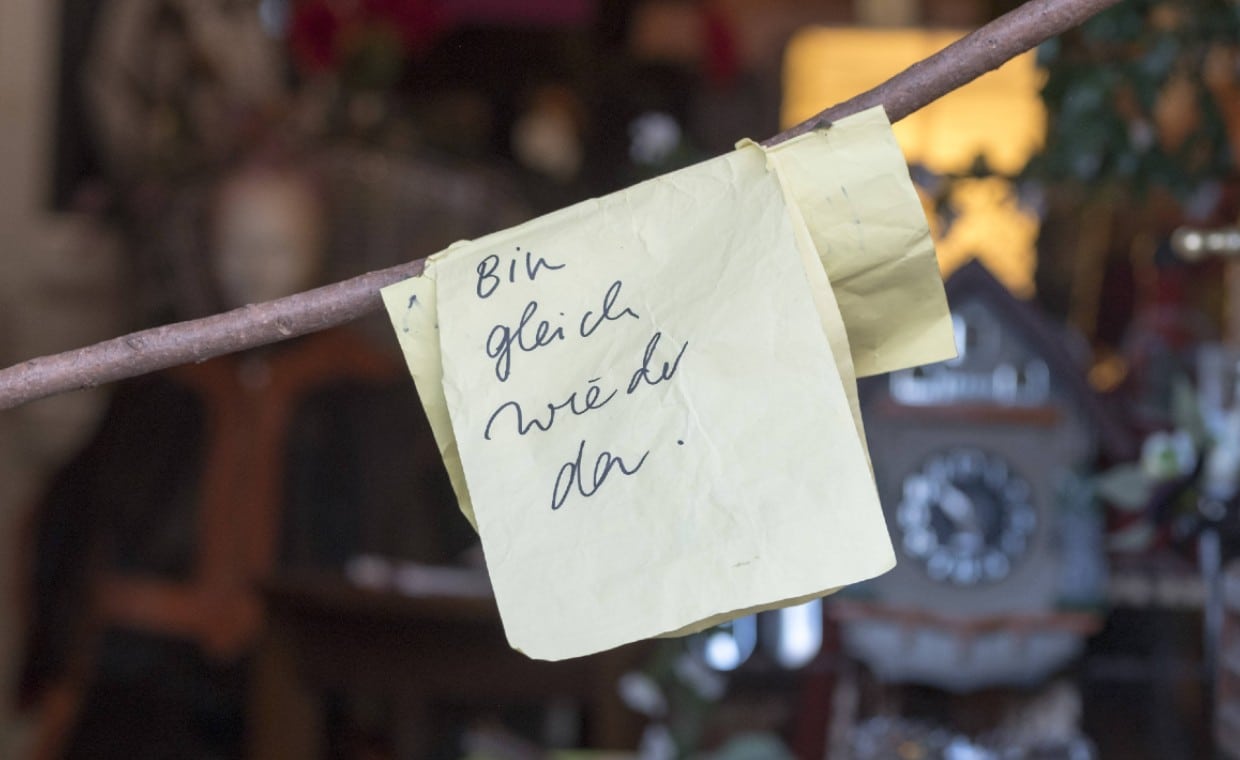 Bin
gleich
wieder
da.